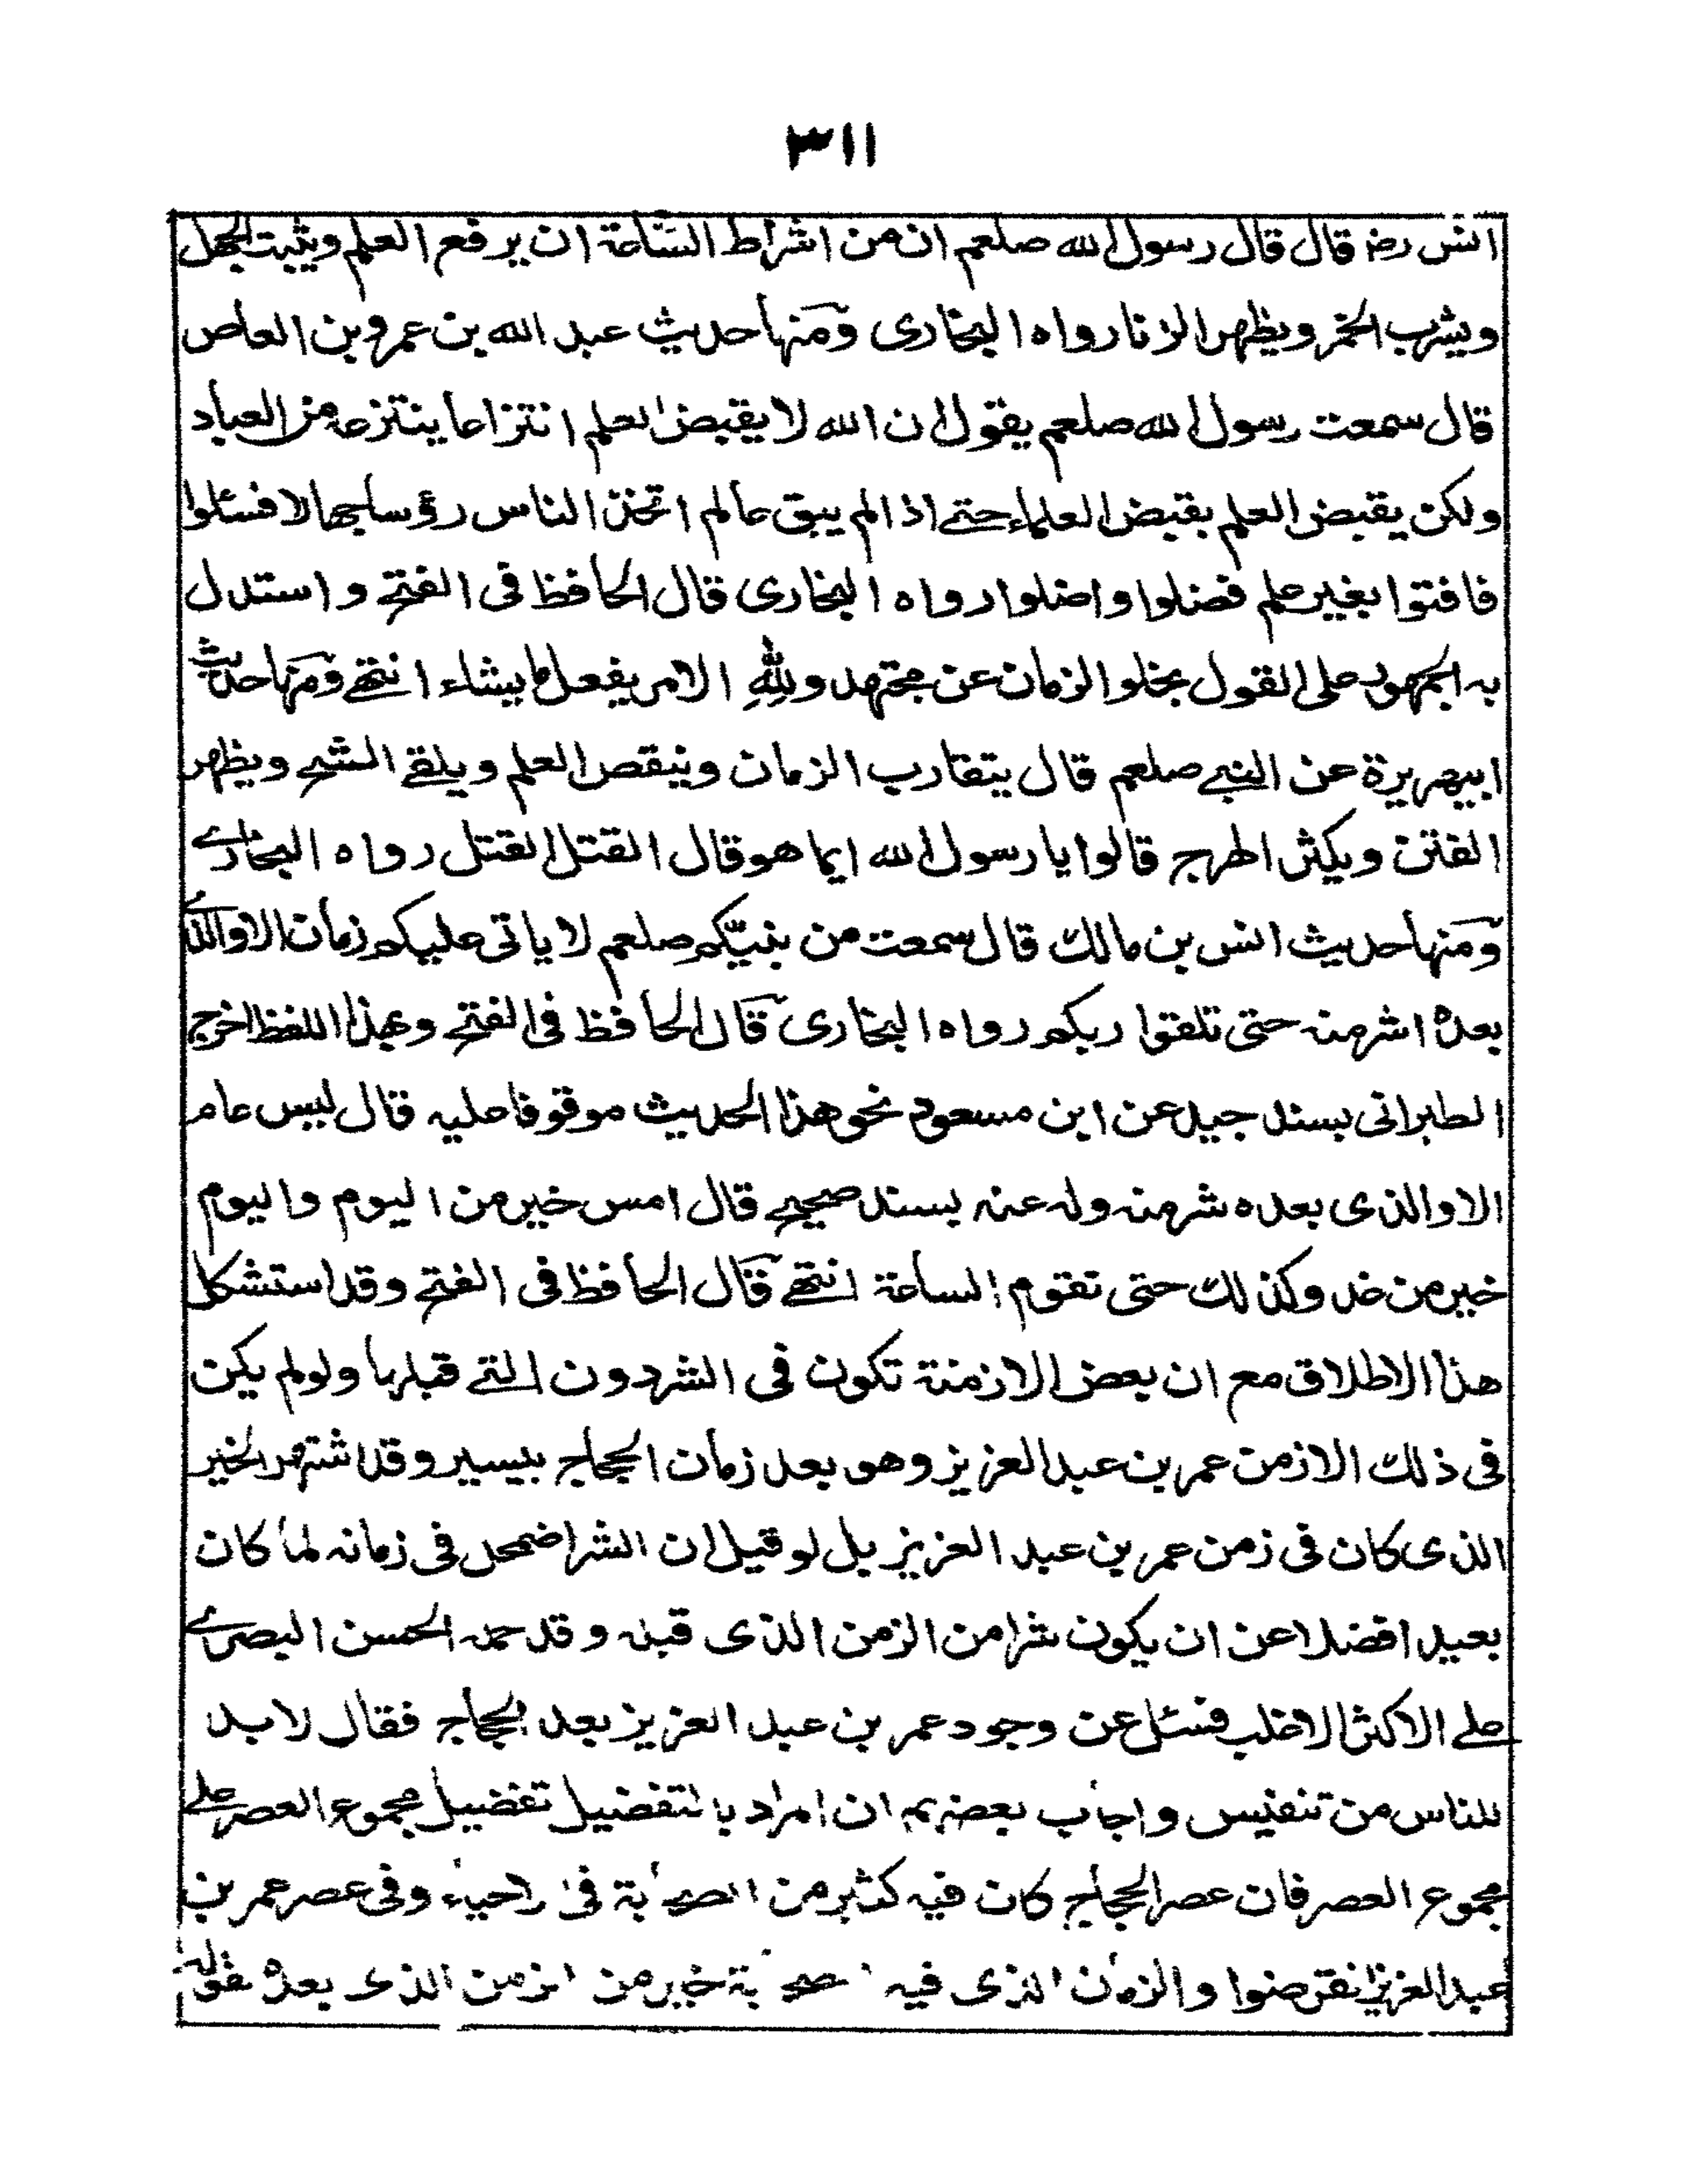 ٣١١
انس رضـ قال قال رسول الله صلعم ان من اشراط الساعة ان يرفع العلم ويثبت الجهل
ويشرب الخمر ويظهر الزنا رواه البخارى ومنها حديث عبد الله بن عمرو بن العاص
قال سمعت رسول الله صلعم يقول ان الله لا يقبض العلم انتزاعا ينتزعه من العباد
ولكن يقبض العلم بقبض العلماء حتے اذا لم يبق عالم اتخذ الناس رؤسا جهالا فسئلوا
فافتوا بغير علم فضلوا واضلوا رواه البخارى قال الحافظ فى الفتح واستدل
به الجمهور على القول بخلو الزمان عن مجتهد وللهِ الامر يفعل ما يشاء انتهے ومنها حديث
ابيهريرة عن النبے صلعم قال يتقارب الزمان وينقص العلم ويلقے الشح ويظهر
الفتن ويكثر الهرج قالوا يا رسول الله ايما هو قال القتل القتل رواه البخارے
ومنها حديث انس بن مالك قال سمعت من نبيّكم صلعم لا ياتى عليكم زمان الا والذے
بعده اشر منه حتى تلقوا ربكم رواه البخارى قال الحافظ فى الفتح وبهذا اللفظ اخرج
الطبرانى بسند جيد عن ابن مسعود نحو هذا الحديث موقوفا عليه قال ليس عام
الا والذى بعده شر منه وله عنه بسند صحيح قال امس خير من اليوم واليوم
خير من غد وكذلك حتى تقوم الساعة انتهے قال الحافظ فى الفتح وقد استشكل
هذا الاطلاق مع ان بعض الازمنة تكون فى الشر دون التے قبلها ولو لم يكن
فى ذلك الا زمن عمر بن عبد العزيز وهو بعد زمان الحجاج بيسير وقد اشتهر الخير
الذى كان فى زمن عمر بن عبد العزيز بل لو قيل ان الشر اضمحل فى زمانه لما كان
بعيدا فضلا عن ان يكون شرا من الزمن الذى قبله وقد حمله الحسن البصرے
علے الاكثر الاغلب فسئل عن وجود عمر بن عبد العزيز بعد الحجاج فقال لا بد
للناس من تنفيس واجاب بعضهم ان المراد بالتفضيل تفضيل مجموع العصر علے
مجموع العصر فان عصر الحجاج كان فيه كثير من الصحابة فى الاحياء وفى عصر عمر بن
عبد العزيز انقرضوا والزمان الذى فيه الصحابة خير من الزمن الذى بعده لقوله